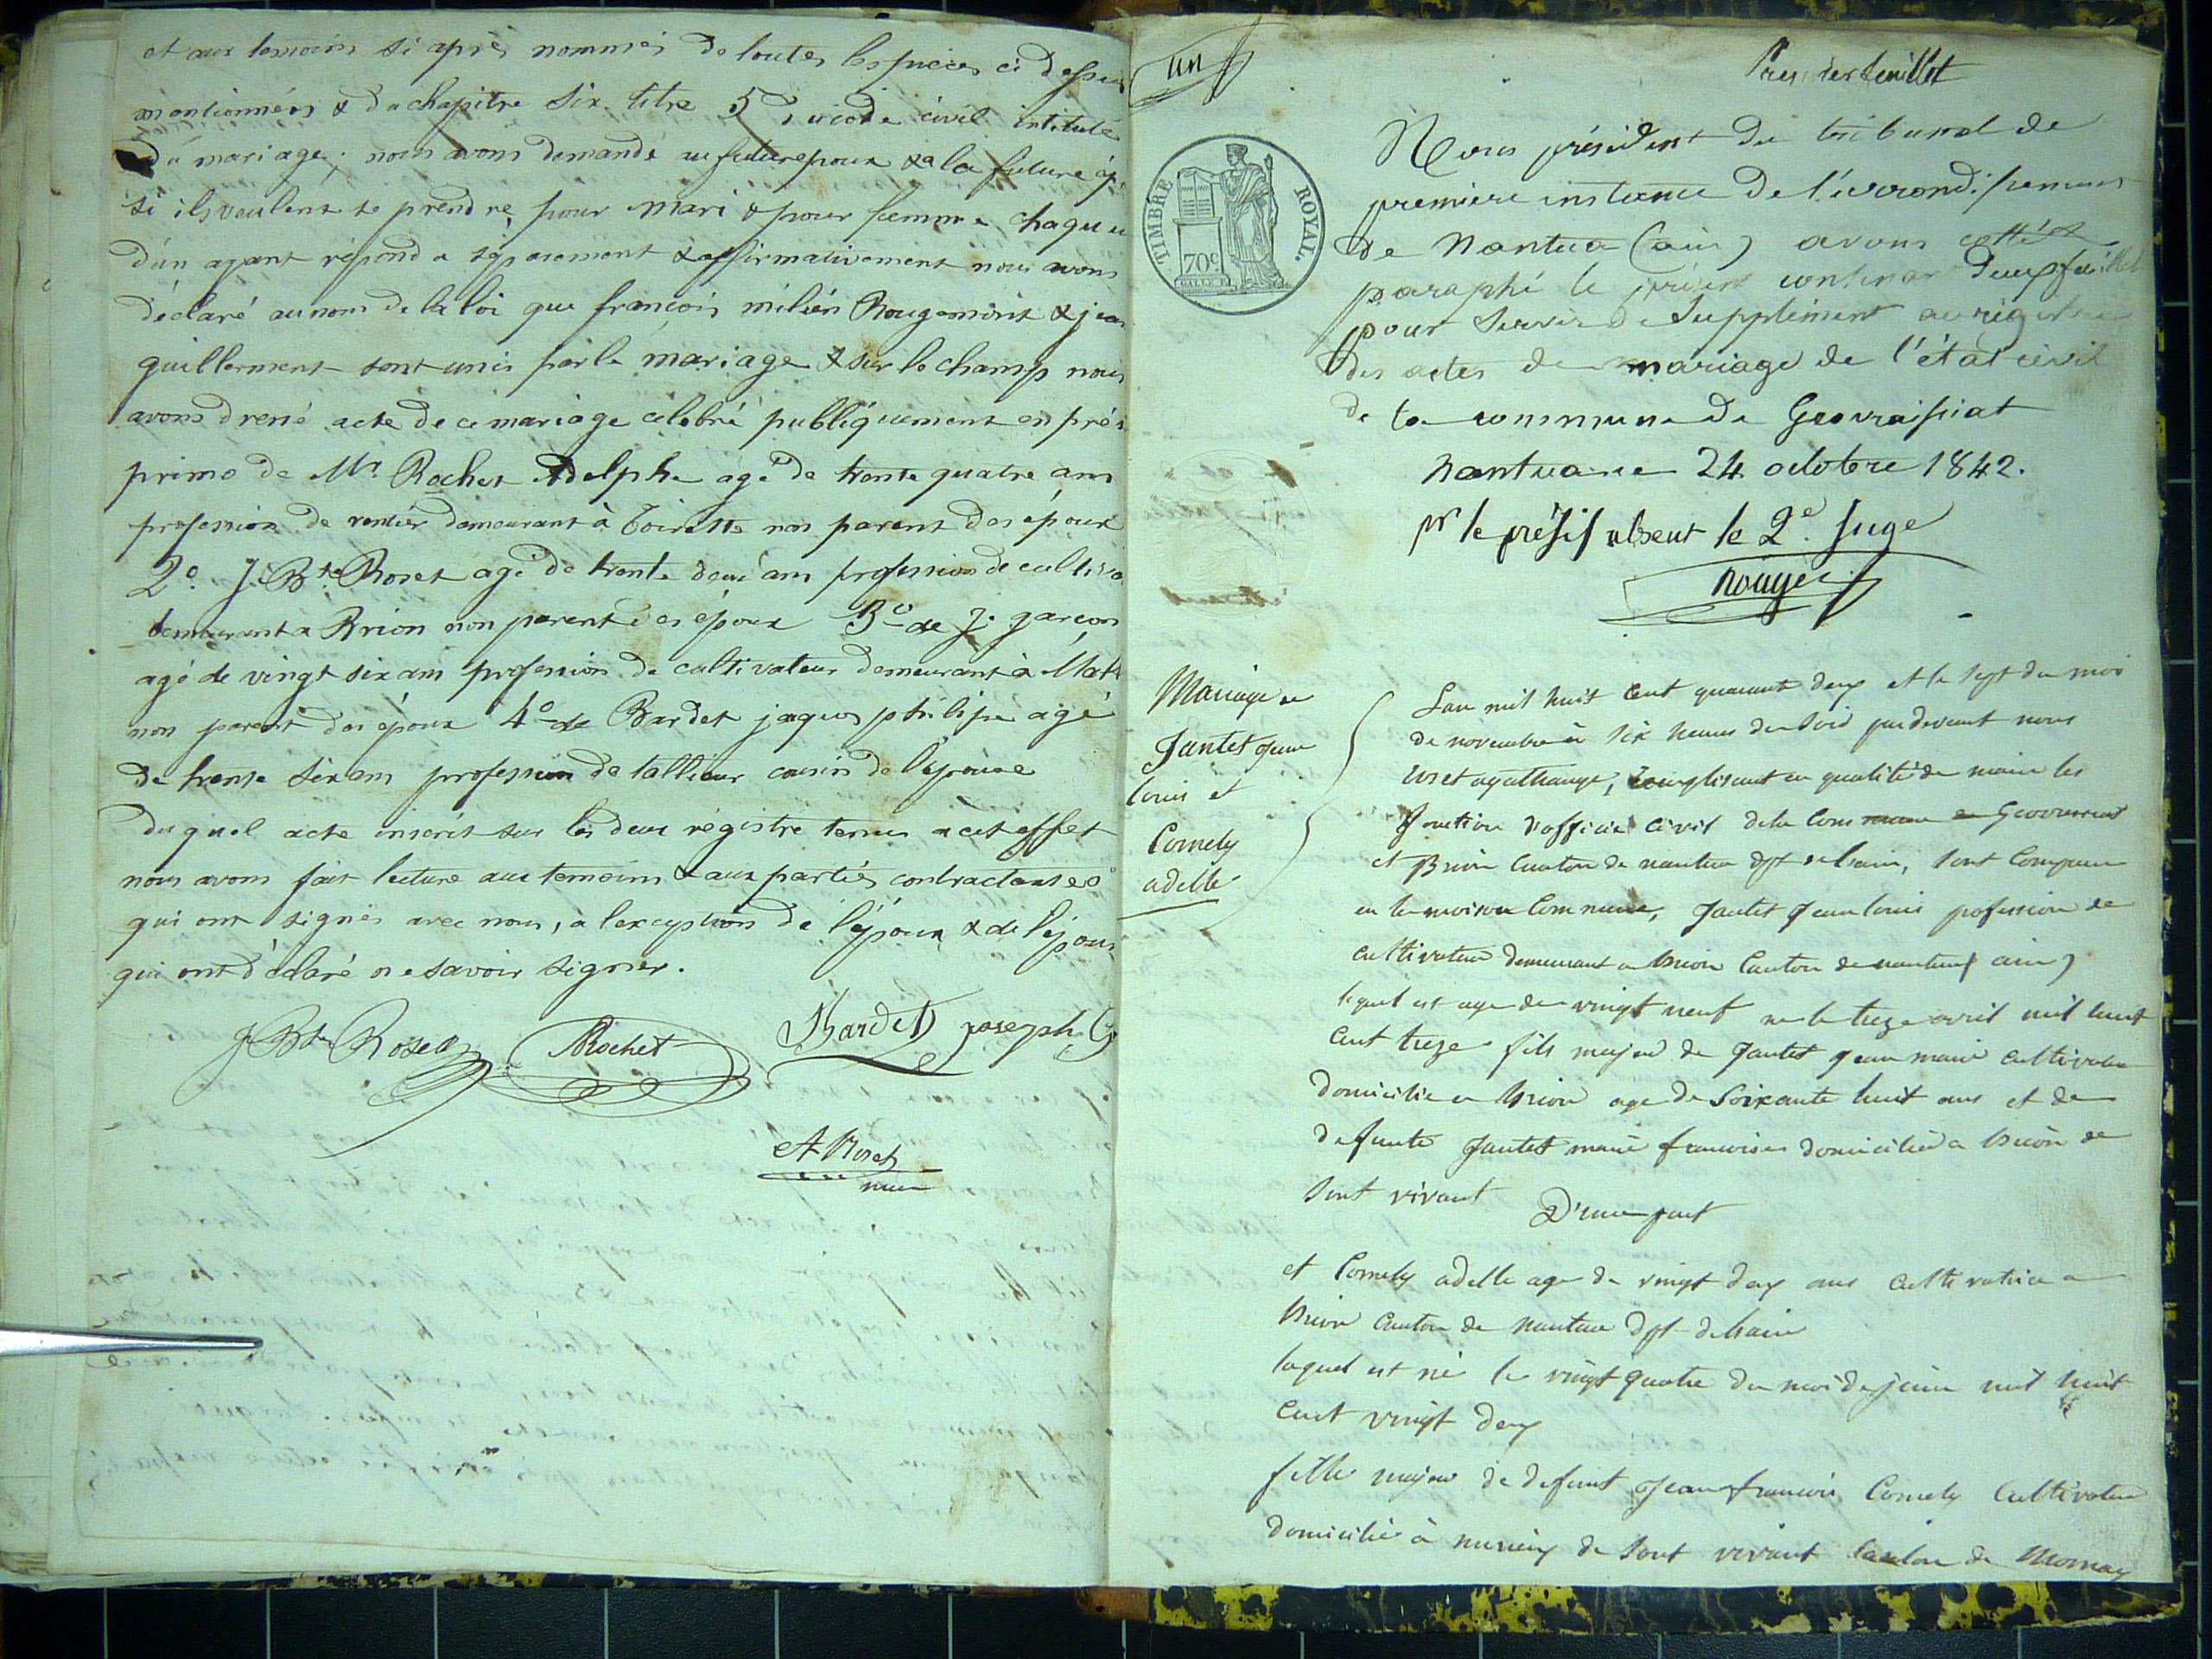 et aux temoins si après nommés de toutes les pièces ci dessus
mentionnées & du chapitre six titre 5 du code civil intitulé
du mariage; nous avons demandé au futur epoux & a la future ép
si ils veulent se prendre pour mari & pour femme chaqu'u
d'un ayant répondu séparement & affirmativement nous avons
déclaré au nom de la loi que françois milién Rougemont & jea
guillermet sont unis par le mariage & sur le champ nous
avons dressé acte de ce mariage célébré publiquement en prés
primo de Mr. Rochet Adelphe agé de trente quatre ans
profession de rentier demeurant à Coirette non parent des époux
2º. J. Bte Roset agé de trente deux ans profession de cultiva
demeurant a Brion non parent des époux 3º de J. garçon
agé de vingt six ans profession de cultivateur demeurant à Mat
non parent des époux 4º de Bardet jaques philipe agé
de trente six ans profession de tallieur cousin de l'épouse
du quel acte inscrit sur les deux régistre tenus a cet effet
nous avons fait lecture aux temoins & aux partiés contractantes
qui ont signés avec nous, a l'exception de l'époux & de l'épous
qui ont déclaré ne savoir signer.
J Bte Roset Rochet Bardet joseph G
A Roset
maire
un
Premier feuillet
TIMBRE ROYAL.
70c
Nous président du tribunal de
première instance de l'arrondissement
de Nantua (ain) avons cotté et
paraphé le présent contenant deux feuillets
pour servir de Supplément au régistre
des actes de mariage de l'état civil
de la commune de Geovraissiat
Nantua ce 24 octobre 1842.
pr le présid absent le 2e. Juge
Rouyer
Mariage de
Jantet Jean
louis et
Comely
adelle
L'an mil huit cent quarante deux et le sept du mois
de novembre à six heures du soir par devant nous
roset agathange, remplissant en qualité de maire les
fonction d'officier civil de la commune de Geovreissiat
et Brion canton de nantua dpt de l'ain, sont comparu
en la maison commune, Jantet Jean louis profession de
cultivateur demeurant a brion canton de nantua (ain)
lequel est age de vingt neuf ne le treze avril mil huit
cent treze fils majeur de Jantet Jean marie cultivateur
domicilié a brion age de soixante huit ans et de
defunte Jantet marie francoise domiciliée a brion de
sont vivant
D'une part
et Comely adelle age de vingt deux ans cultivatrice a
brion canton de nantua dpt de l'ain
laquel est né le vingt quatre du mois de juin mil huit
cent vingt deux
fille majeur de defunt Jean francois Comely cultivateur
domicilié à de sont vivant canton de Mornay